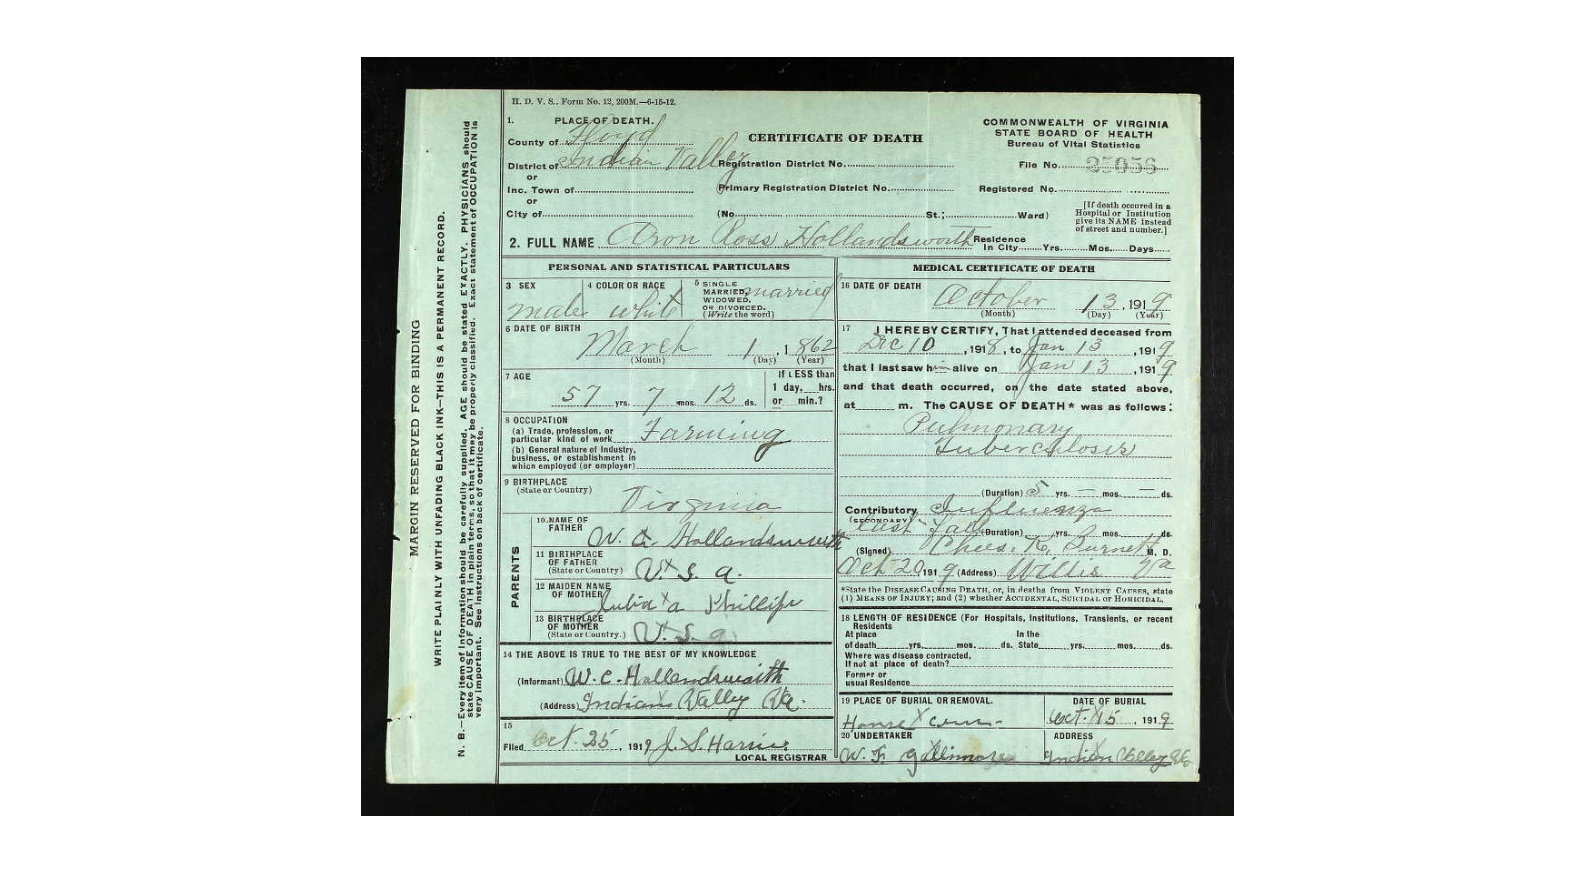 H. D. V. S., Form No. 12, 200M.—6-15-12.
1. PLACE OF DEATH.
County of Floyd
District of Indian Valley
or
Inc. Town of
or
City of
CERTIFICATE OF DEATH
Registration District No.
Primary Registration District No.
(No. St.; Ward)
COMMONWEALTH OF VIRGINIA
STATE BOARD OF HEALTH
Bureau of Vital Statistics
File No.
Registered No.
[If death occured in a
Hospital or Institution
give its NAME instead
of street and number.]
2. FULL NAME Aron Ross Hollandsworth Residence
In City Yrs. Mos. Days
PERSONAL AND STATISTICAL PARTICULARS
3 SEX male
4 COLOR OR RACE white
5 SINGLE
MARRIED, married
WIDOWED,
OR DIVORCED.
(Write the word)
6 DATE OF BIRTH
March 1, 1862
(Month) (Day) (Year)
7 AGE
57 yrs. 7 mos. 12 ds.
If LESS than
1 day, hrs.
or min.?
8 OCCUPATION
(a) Trade, profession, or
particular kind of work Farming
(b) General nature of industry,
business, or establishment in
which employed (or employer)
9 BIRTHPLACE
(State or Country) Virginia
PARENTS
10. NAME OF
FATHER W. A. Hollandsworth
11 BIRTHPLACE
OF FATHER
(State or Country) U. S. a.
12 MAIDEN NAME
OF MOTHER a Phillips
13 BIRTHPLACE
OF MOTHER
(State or Country.) U. S. a
14 THE ABOVE IS TRUE TO THE BEST OF MY KNOWLEDGE
(Informant) W. C. Hollandsworth
(Address) Indian Valley Va.
15
Filed Oct. 25, 1919 J. S. Harris
LOCAL REGISTRAR
MEDICAL CERTIFICATE OF DEATH
16 DATE OF DEATH
October 13, 1919
(Month) (Day) (Year)
17 I HEREBY CERTIFY, That I attended deceased from
Dec 10, 1918, to Jan 13, 1919
that I last saw him alive on Jan 13, 1919
and that death occurred, on the date stated above,
at m. The CAUSE OF DEATH* was as follows:
Pulmonary
Tuberculosis
(Duration) 5 yrs. — mos. — ds.
Contributory Influenza
(SECONDARY)
last fall (Duration) yrs. mos. ds.
(Signed) Chas. K. Burnett M. D.
Oct 20 1919 (Address) Willis Va
*State the DISEASE CAUSING DEATH, or, in deaths from VIOLENT CAUSES, state
(1) MEANS OF INJURY; and (2) whether ACCIDENTAL, SUICIDAL or HOMICIDAL.
18 LENGTH OF RESIDENCE (For Hospitals, Institutions, Transients, or recent
Residents
At place In the
of death yrs. mos. ds. State yrs. mos. ds.
Where was disease contracted,
If not at place of death?
Former or
usual Residence
19 PLACE OF BURIAL OR REMOVAL.
DATE OF BURIAL
Oct. 15, 1919
20 UNDERTAKER
W. F. Gallimore
ADDRESS
Indian Valley Va
MARGIN RESERVED FOR BINDING
WRITE PLAINLY WITH UNFADING BLACK INK—THIS IS A PERMANENT RECORD.
N. B.—Every item of Information should be carefully supplied. AGE should be stated EXACTLY. PHYSICIANS should
state CAUSE OF DEATH in plain terms, so that it may be properly classified. Exact statement of OCCUPATION is
very important. See instructions on back of certificate.